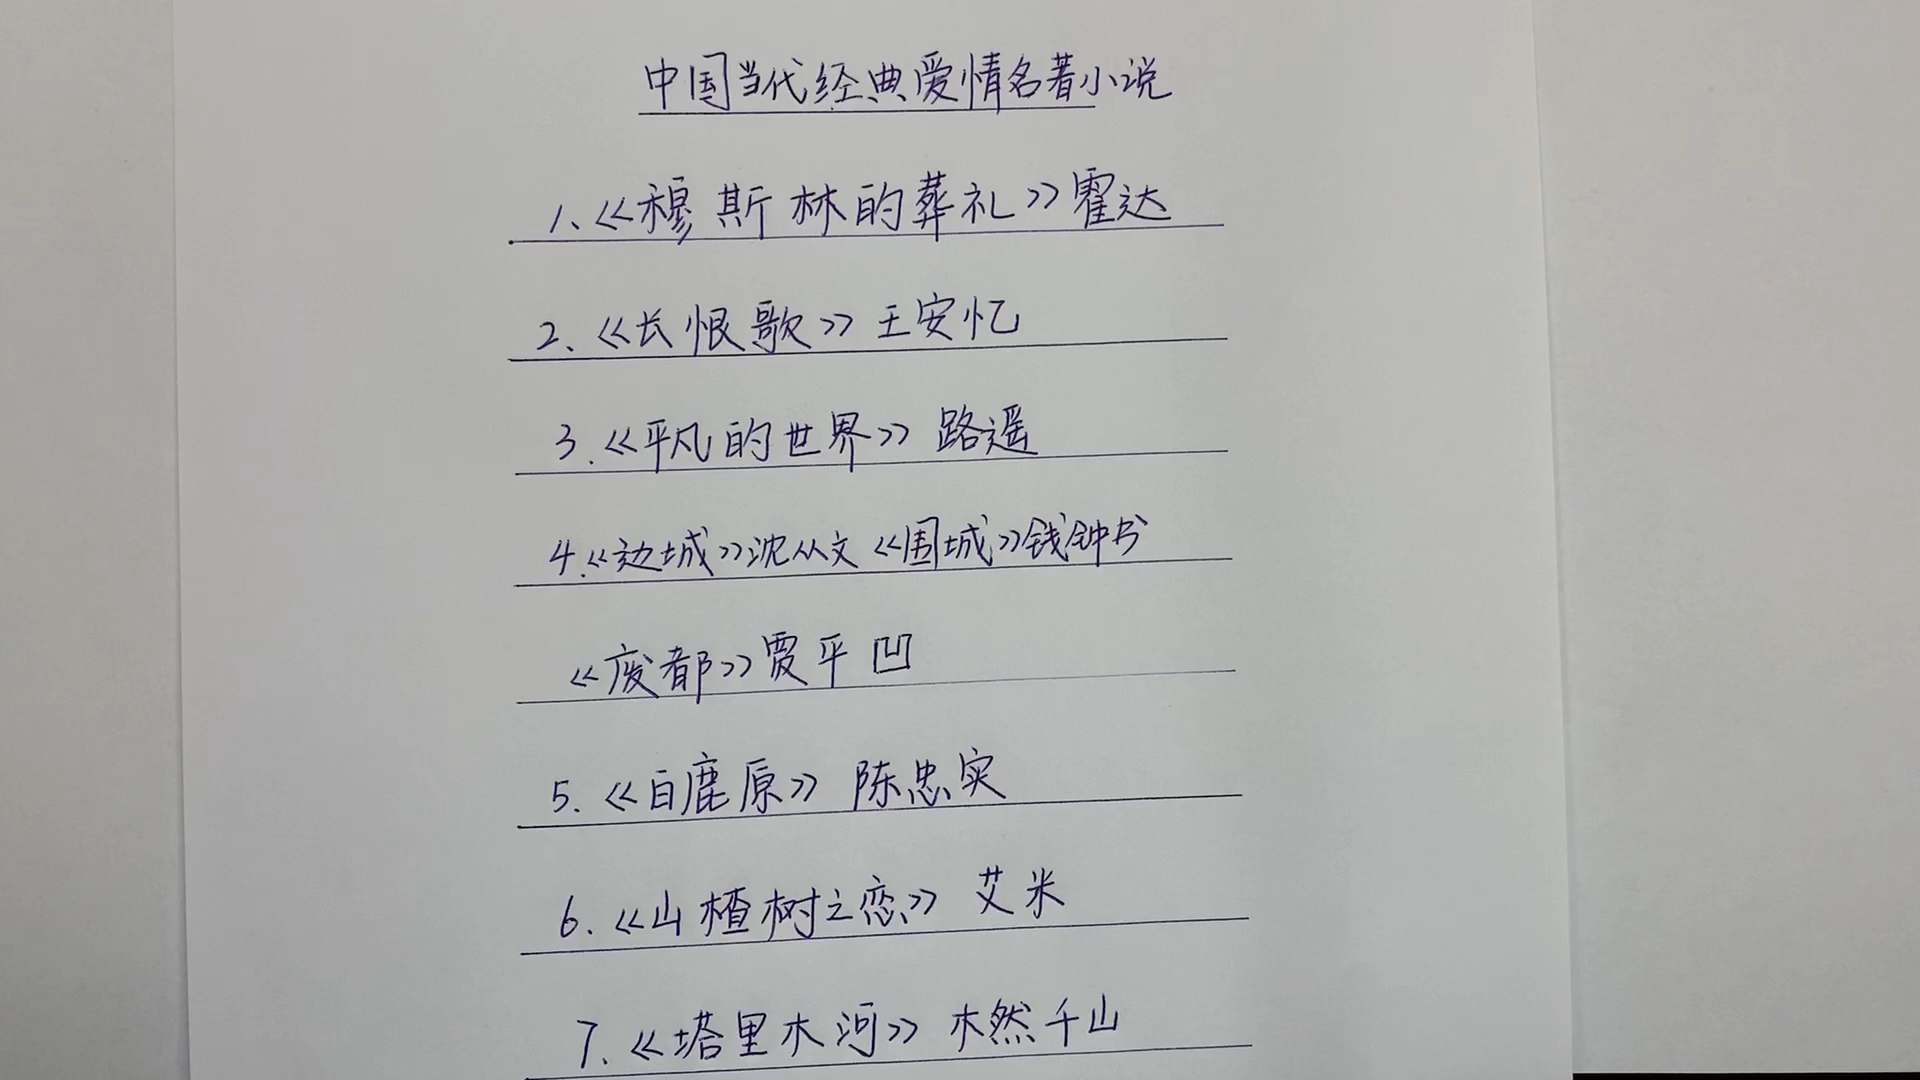 中国当代经典爱情名著小说
1、《穆斯林的葬礼》霍达
2、《长恨歌》王安忆
3.《平凡的世界》路遥
4.《边城》沈从文《围城》钱钟书
《废都》贾平凹
5.《白鹿原》陈忠实
6.《山楂树之恋》艾米
7.《塔里木河》木然千山